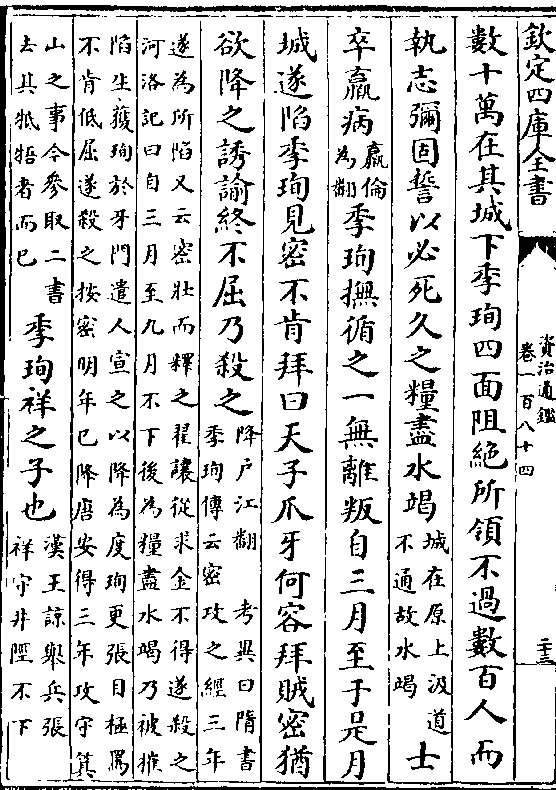 欽定四庫全書
資治通鑑
卷一百八十四
二十三
數十萬在其城下季珣四面阻絕所領不過數百人而
執志彌固誓以必死久之糧盡水竭
城在原上汲道
不通故水竭
士
卒羸病
羸倫
為翻
季珣撫循之一無離叛自三月至于是月
城遂陷季珣見密不肯拜曰天子爪牙何容拜賊密猶
欲降之誘諭終不屈乃殺之
降户江翻 考異曰隋書
季珣傳云密攻之經三年
遂為所陷又云密壯而釋之翟讓從求金不得遂殺之
河洛記曰自三月至九月不下後為糧盡水竭乃被摧
陷生獲珣於牙門遣人宣之以降為度珣更張目極罵
不肯低屈遂殺之按密明年已降唐安得三年攻守箕
山之事今參取二書
去其牴牾者而已
季珣祥之子也
漢王諒舉兵張
祥守井陘不下